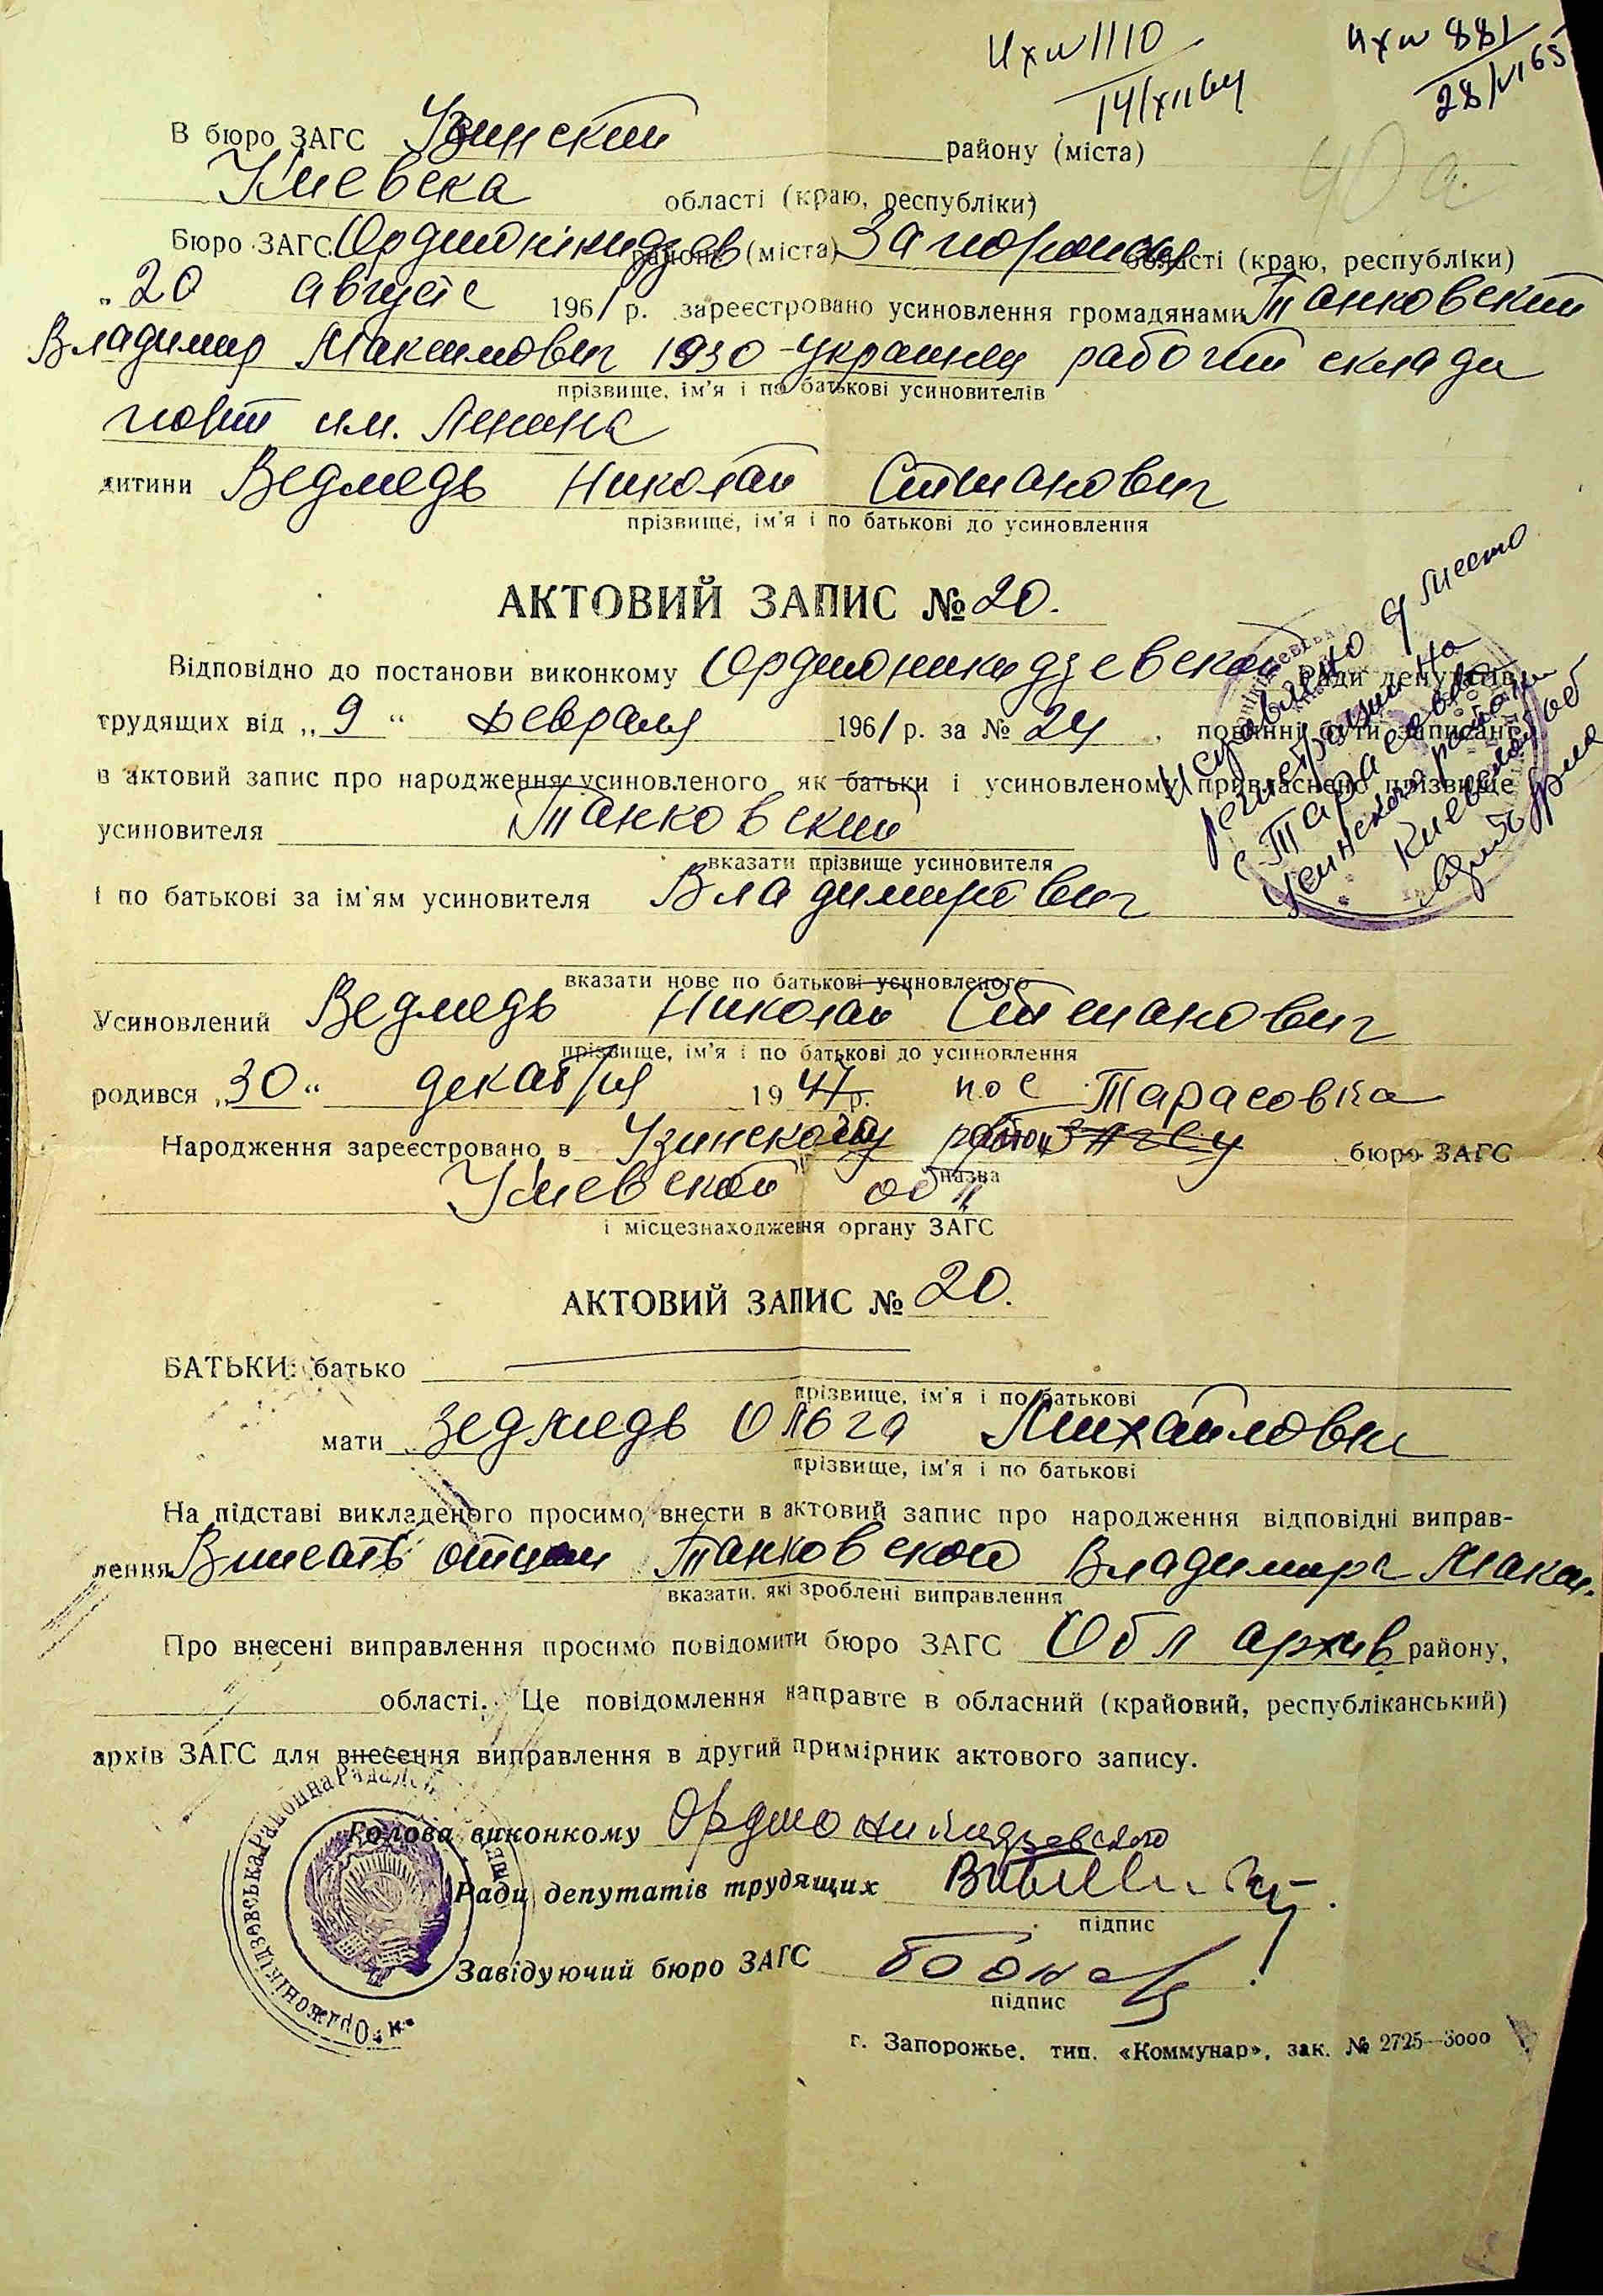 Ихи 1110
14/XII 64
Ихи 881
28/VI 65
В бюро ЗАГС Узинский району (міста)
40 а.
Киевска області (краю, республіки)
Бюро ЗАГС Орджонікидзев району (міста) Запорожск області (краю, республіки)
„20 августе 1961 р. зареєстровано усиновлення громадянами Танковский
Владимир Максимович 1930 украинец рабочий склада
прізвище, ім'я і по батькові усиновителів
порт им. Ленина
дитини Ведмедь Николай Степанович
прізвище, ім'я і по батькові до усиновлення
АКТОВИЙ ЗАПИС № 20.
Відповідно до постанови виконкому Орджоникидзевской Ради депутатів
трудящих від „9“ февраля 1961 р. за № 24, повинні бути записані
в актовий запис про народження усиновленого як батьки і усиновленому привласнено прізвище
усиновителя Танковский
вказати прізвище усиновителя
і по батькові за ім'ям усиновителя Владимирович
Исправлено я место
регистрации на
с Тарасовка
Узинского района
Киевской обл
вказати нове по батькові усиновленого
Усиновлений Ведмедь Николай Степанович
прізвище, ім'я і по батькові до усиновлення
родився „30“ декабря 1947 р. по с Тарасовка
Народження зареєстровано в Узинскому район Загсу бюро ЗАГС
назва
Киевской обл
і місцезнаходження органу ЗАГС
АКТОВИЙ ЗАПИС № 20.
БАТЬКИ: батько
прізвище, ім'я і по батькові
мати Ведмедь Ольга Михайловна
прізвище, ім'я і по батькові
На підставі викладеного просимо внести в актовий запис про народження відповідні виправ-
лення Вписать отцом Танковского Владимира Макси.
вказати, які зроблені виправлення
Про внесені виправлення просимо повідомити бюро ЗАГС Обл архив району,
області. Це повідомлення направте в обласний (крайовий, республіканський)
архів ЗАГС для внесення виправлення в другий примірник актового запису.
Голова виконкому Орджоникидзевского
Ради депутатів трудящих
підпис
Завідуючий бюро ЗАГС
підпис
г. Запорожье, тип. «Коммунар», зак. № 2725—3000